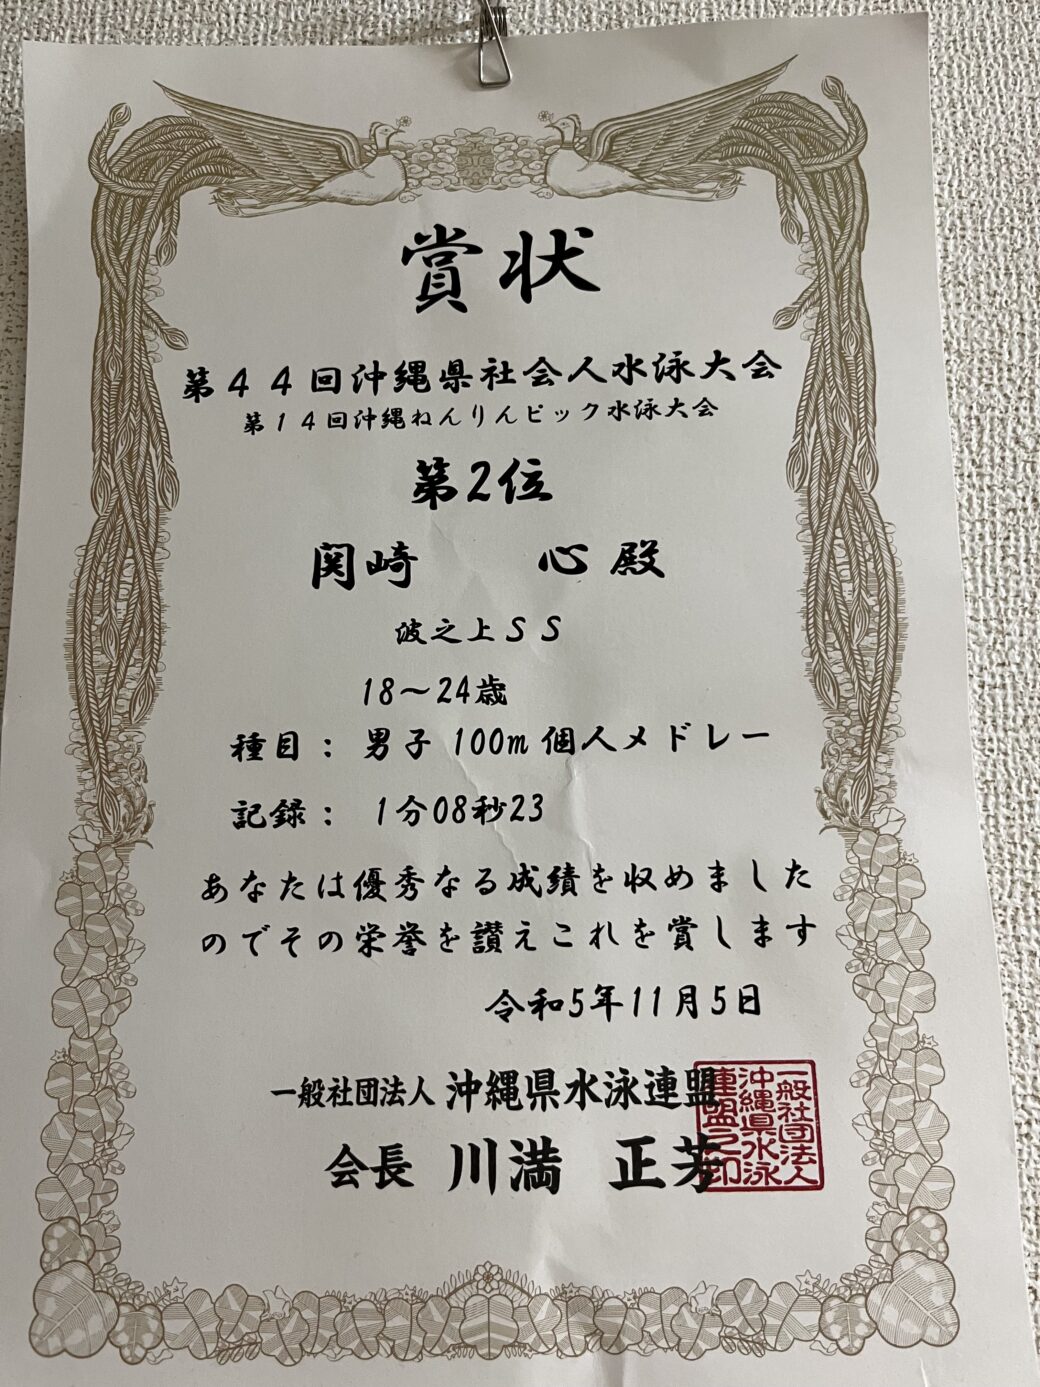 賞状
第44回沖縄県社会人水泳大会
第14回沖縄ねんりんピック水泳大会
第2位
関崎　心 殿
波之上SS
18～24歳
種目： 男子 100m 個人メドレー
記録： 1分08秒23
あなたは優秀なる成績を収めました
のでその栄誉を讃えこれを賞します
令和5年11月5日
一般社団法人 沖縄県水泳連盟
会長 川満 正芳
一般社団法人
沖縄県水泳
連盟之印